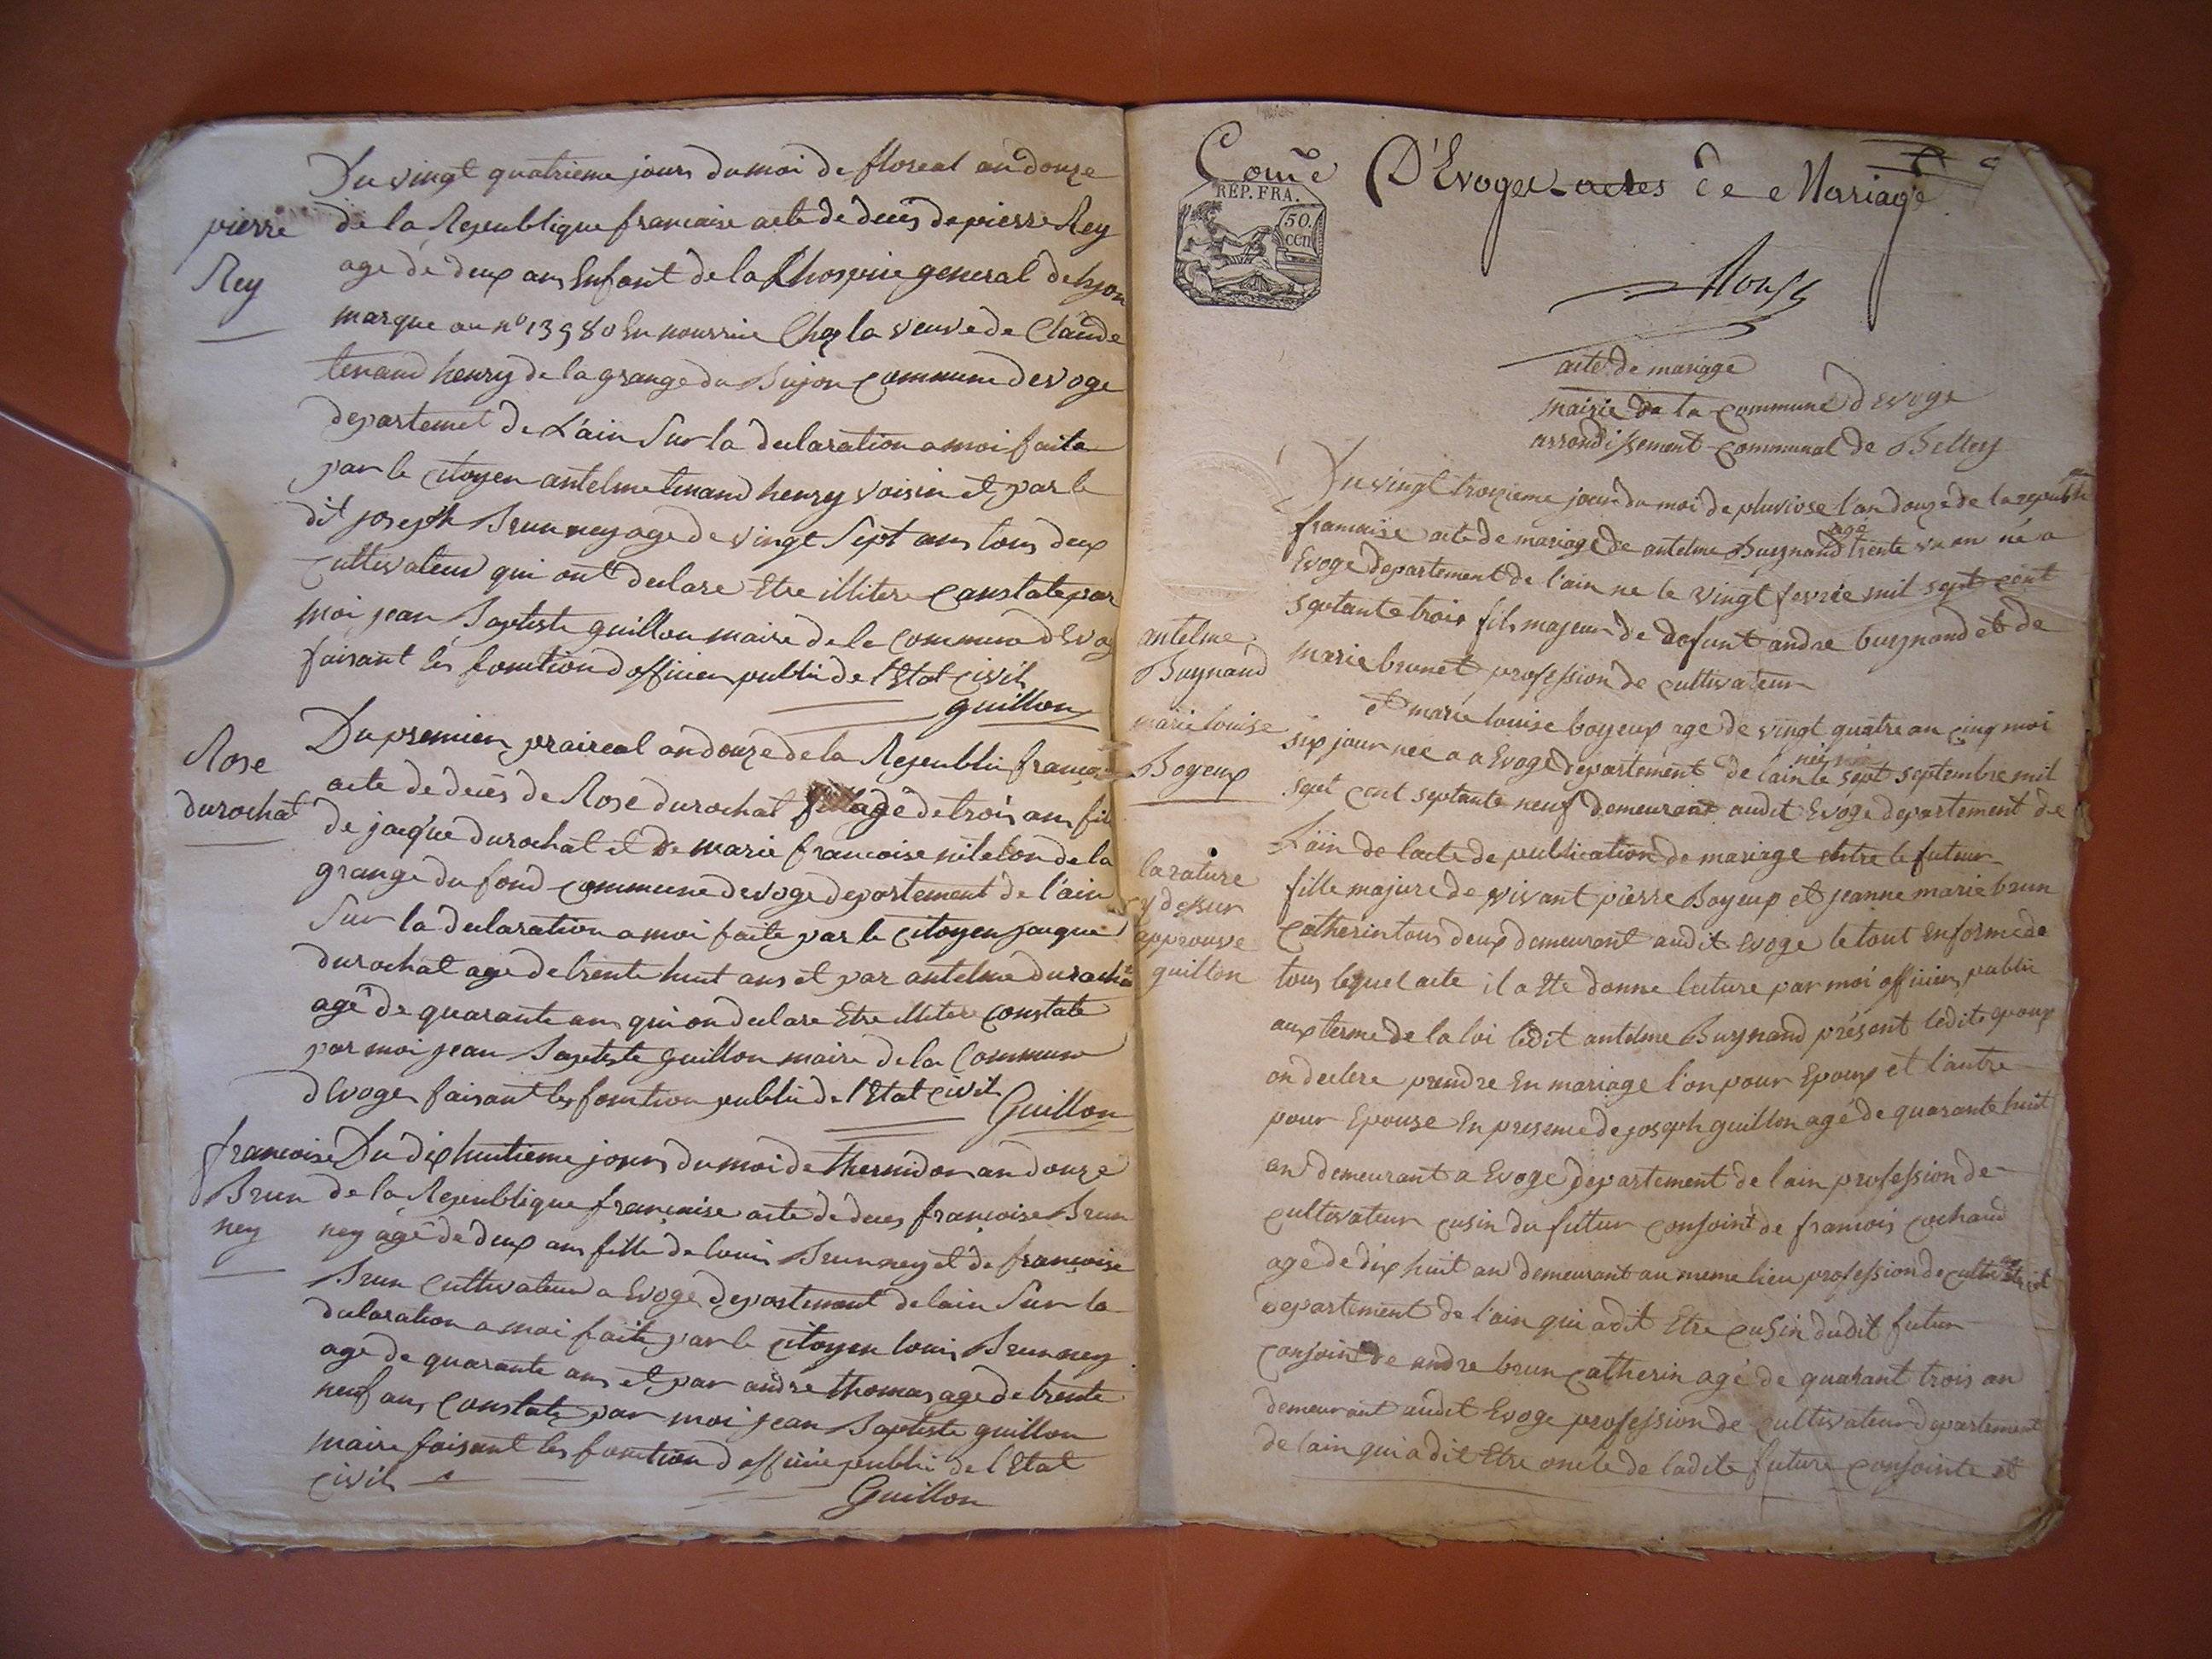 Du vingt quatrieme jours du moi de floreal an douze
pierre
Rey
de la Republique francaise acte de deces de pierre Rey
age de deux ans Enfant de la Lhospiie general de lyon
marque au n° 13980 En nourrice Chez la veuve de Claude
tenand henry de la grange du Dujon commune devoge
departemet de L'ain Sur la declaration a moi faite
par le citoyen antelme tenand henry voisin et par le
dit joseph Brun ney age de vingt Sept ans tous deux
cultivateur qui ont declare Etre illitere constate par
moi jean Baptiste guillon maire de la commune dEvog
faisant les fonction d officier public de l'Etat civil
guillon
Rose
durochat
Du premier praireal an douze de la Republi françai
acte de deces de Rose durochat agé de trois ans fil
de jacque durochat et de marie francoise
grange du fond commune devoge departement de l'ain
Sur la declaration a moi faite par le citoyen jacque
durochat age de trente huit ans et par antelme durochat
agé de quarante ans qui on declare Etre illitere constate
par moi jean Baptiste guillon maire de la Commune
dEvoges faisant les fonction public de l'Etat civil
Guillon
francoise
Brun
ney
Du dix huitieme jours du moi de thermidor an douze
de la Republique française acte de deces françoise Brun
ney agé de deux ans fille de louis Brun ney et de françoise
Brun Cultivateur a Evoge departement de lain Sur la
declaration a moi faite par le citoyen louis Brun ney
age de quarante ans et par andre thomas age de trente
neuf ans, constate par moi jean Baptiste guillon
maire faisant les fonction d officié public de l Etat
civil
Guillon
Come D'Evoges actes de Mariage
REP. FRA.
50.
cen
acte de mariage
mairie de la commune d Evoge
arrondissement communal de Belley
Du vingt troizieme jour du moi de pluviose l'an douze de la republi
francaise acte de mariage de antelme Buynand agé trente un an né a
Evoge departement de l'ain ne le vingt fevrie mil sept cent
septante trois fils majeur de defunt andre buynand et de
marie brunet profession de cultivateur
antelme
Buynand
marie louise
Boyeux
et marie louise boyeux age de vingt quatre an cinq moi
six jour nee a a Evoge departement de lain le sept septembre mil
sept cent septante neuf demeurant audit Evoge departement de
L'ain de l'acte de publication de mariage entre le futeur
fille majure de vivant pierre Boyeux et jeanne marie brun
catherin tous deux demeurant audit Evoge le tout En forme de
tous lequel acte il a Ete donne lecture par moi officier public
aux terme de la loi ledit antelme Buynand présent ledit epoux
on declere prendre En mariage l'on pour Epoux et l'autre
pour Epouse En presence de joseph guillon agé de quarante huit
an demeurant a Evoge departement de lain profession de
cultivateur cusin du futtur conjoint de francois cochand
age de dix huit an demeurant au meme lieu profession de cultivateur
departement de l'ain qui a dit Etre cusin dudit futur
conjoint de andre brun catherin agé de quarant trois an
demeurant audit Evoge profession de cultivateur departement
de lain qui a dit Etre oncle de ladite future conjointe et
la rature
y dessur
approuve
guillon